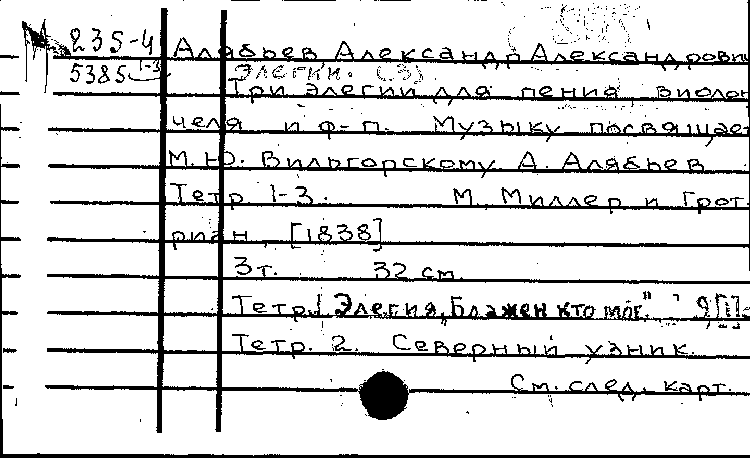 М 235-4
5385 1-3
Алябьев Александр Александрович
Элегии. (3)
Три элегии для пения, виолон
челя и ф-п. Музыку посвящает
М.Ю. Вильгорскому А. Алябьев
Тетр 1-3. М, Миллер и Грот
риан, [1838]
3т. 32 см.
Тетр. 1 Элегия „Блажен кто мог"
Тетр. 2. Северный узник.
См. след. карт.